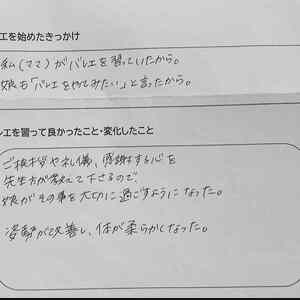 エを始めたきっかけ
私(ママ)がバレエを習っていたから。
娘も「バレエをやってみたい」と言ったから。
レエを習って良かったこと・変化したこと
ご挨拶や礼儀、感謝する心を
先生方が教えて下さるので、
娘がその事を大切に過ごすようになった。
姿勢が改善し、体が柔らかくなった。